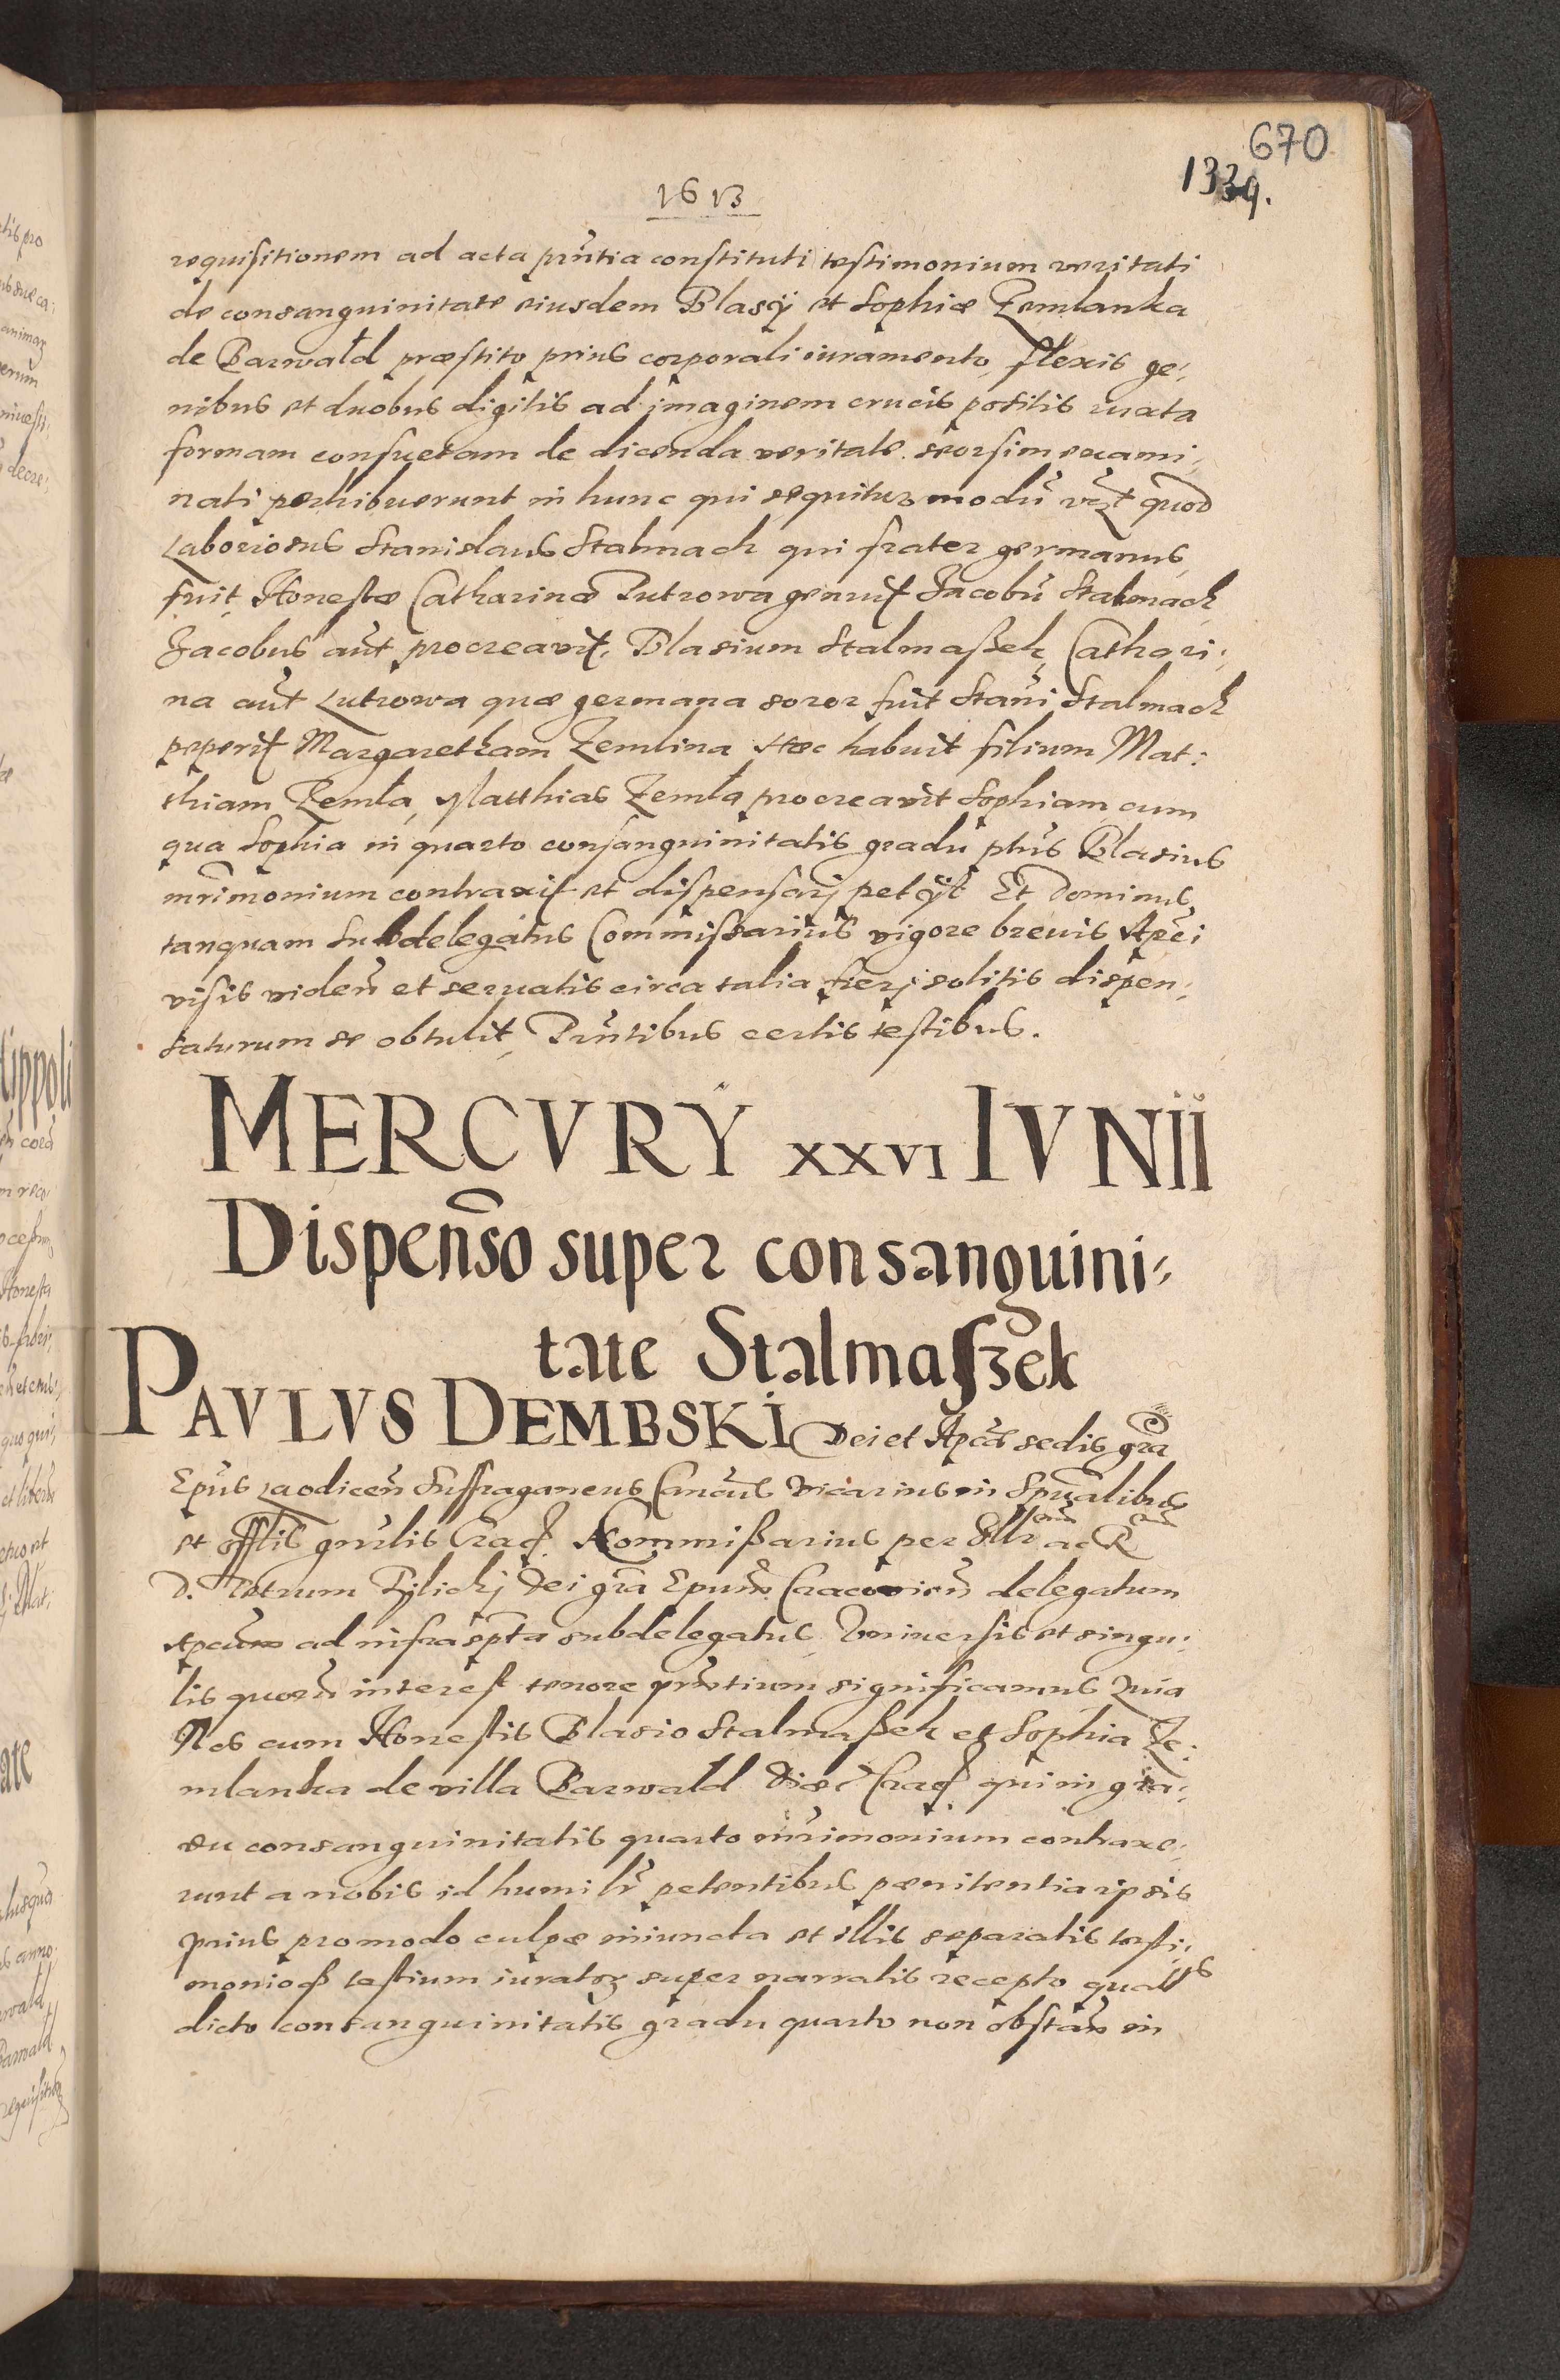 670
1339.
1613
requisitionem ad acta pñtia constituti testimonium veritati
de consanguinitate eiusdem Blasÿ et Sophiæ Zemlanka
de Barwałd præstito prius corporali iuramento, flexis ge:
nibus et duobus digitis ad imaginem crucis positis iuxta
formam consuetam de dicenda veritate seorsim exami:
nati perhibuerunt in hunc qui sequitur modũ vzt quod
Laboriosus Stanislaus Stalmach qui frater germanus
fuit Honestæ Catharinæ Lutrowa genuit Jacobũ Stalmach
Jacobus aũt procreavit Blasium Stalmaßek, Cathari:
na aũt Lutrowa quæ germana soror fuit Stañi Stalmach
peperit Margaretham Zemlina Hæc habuit filium Mat:
thiam Zemła, Matthias Zemła procreavit Sophiam cum
qua Sophia in quarto consanguinitatis gradu ptus Blasius
mr̃imonium contraxit et dispensarj petÿt Et Dominus
tanquam Subdelegatus Commissarius vigore brevis Aplci
visis videñ et servatis circa talia fierj solitis dispen:
saturum se obtulit, Pñtibus certis testibus.
MERCVRŸ XXVI IVNII
Dispenso super consanguini:
tate Stalmaszek
PAVLVS DEMBSKI Dei et Aplcæ sedis gr̃a
Epũs Laodiceñ Suffraganeus Cancũs Vicarius in Spũalibus
et offlis gñrlis Crac. Commißarius per Illr̃ em ac R dum
D. Petrum Tÿlickj Dei gr̃a Epum Cracovieñ delegatum
Aplcum ad infrascpta subdelegatus Universis et singu:
lis quorũ interest tenore pñtium significamus Quia
Nos cum Honestis Blasio Stalmaßek et Sophia Ze:
mlanka de villa Barwałd Diæc Crac qui in gra:
du consanguinitatis quarto mr̃imonium contraxe:
runt a nobis id humilr̃ petentibus pænitentia ipsis
prius pro modo culpæ iniuncta et illis separatis testi:
monioq testium iurator super narratis recepto quatts
dicto consanguinitatis gradu quarto non obstañ in